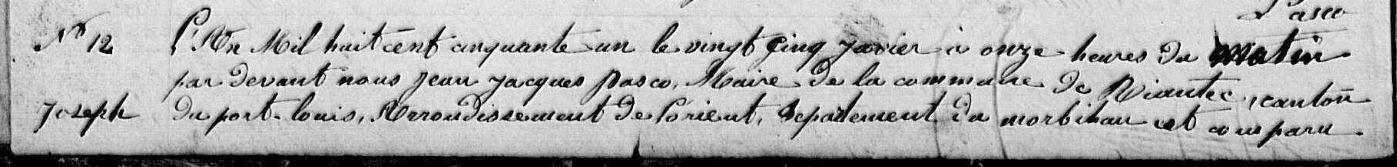 Pasco
N° 12 L'An Mil huit cent cinquante un le vingt cinq Janvier à onze heures du matin
par devant nous Jean Jacques Pasco, Maire de la commune de Riantec, canton
Joseph du port-louis, Arrondissement de Lorient, Departement du morbihan est comparu.